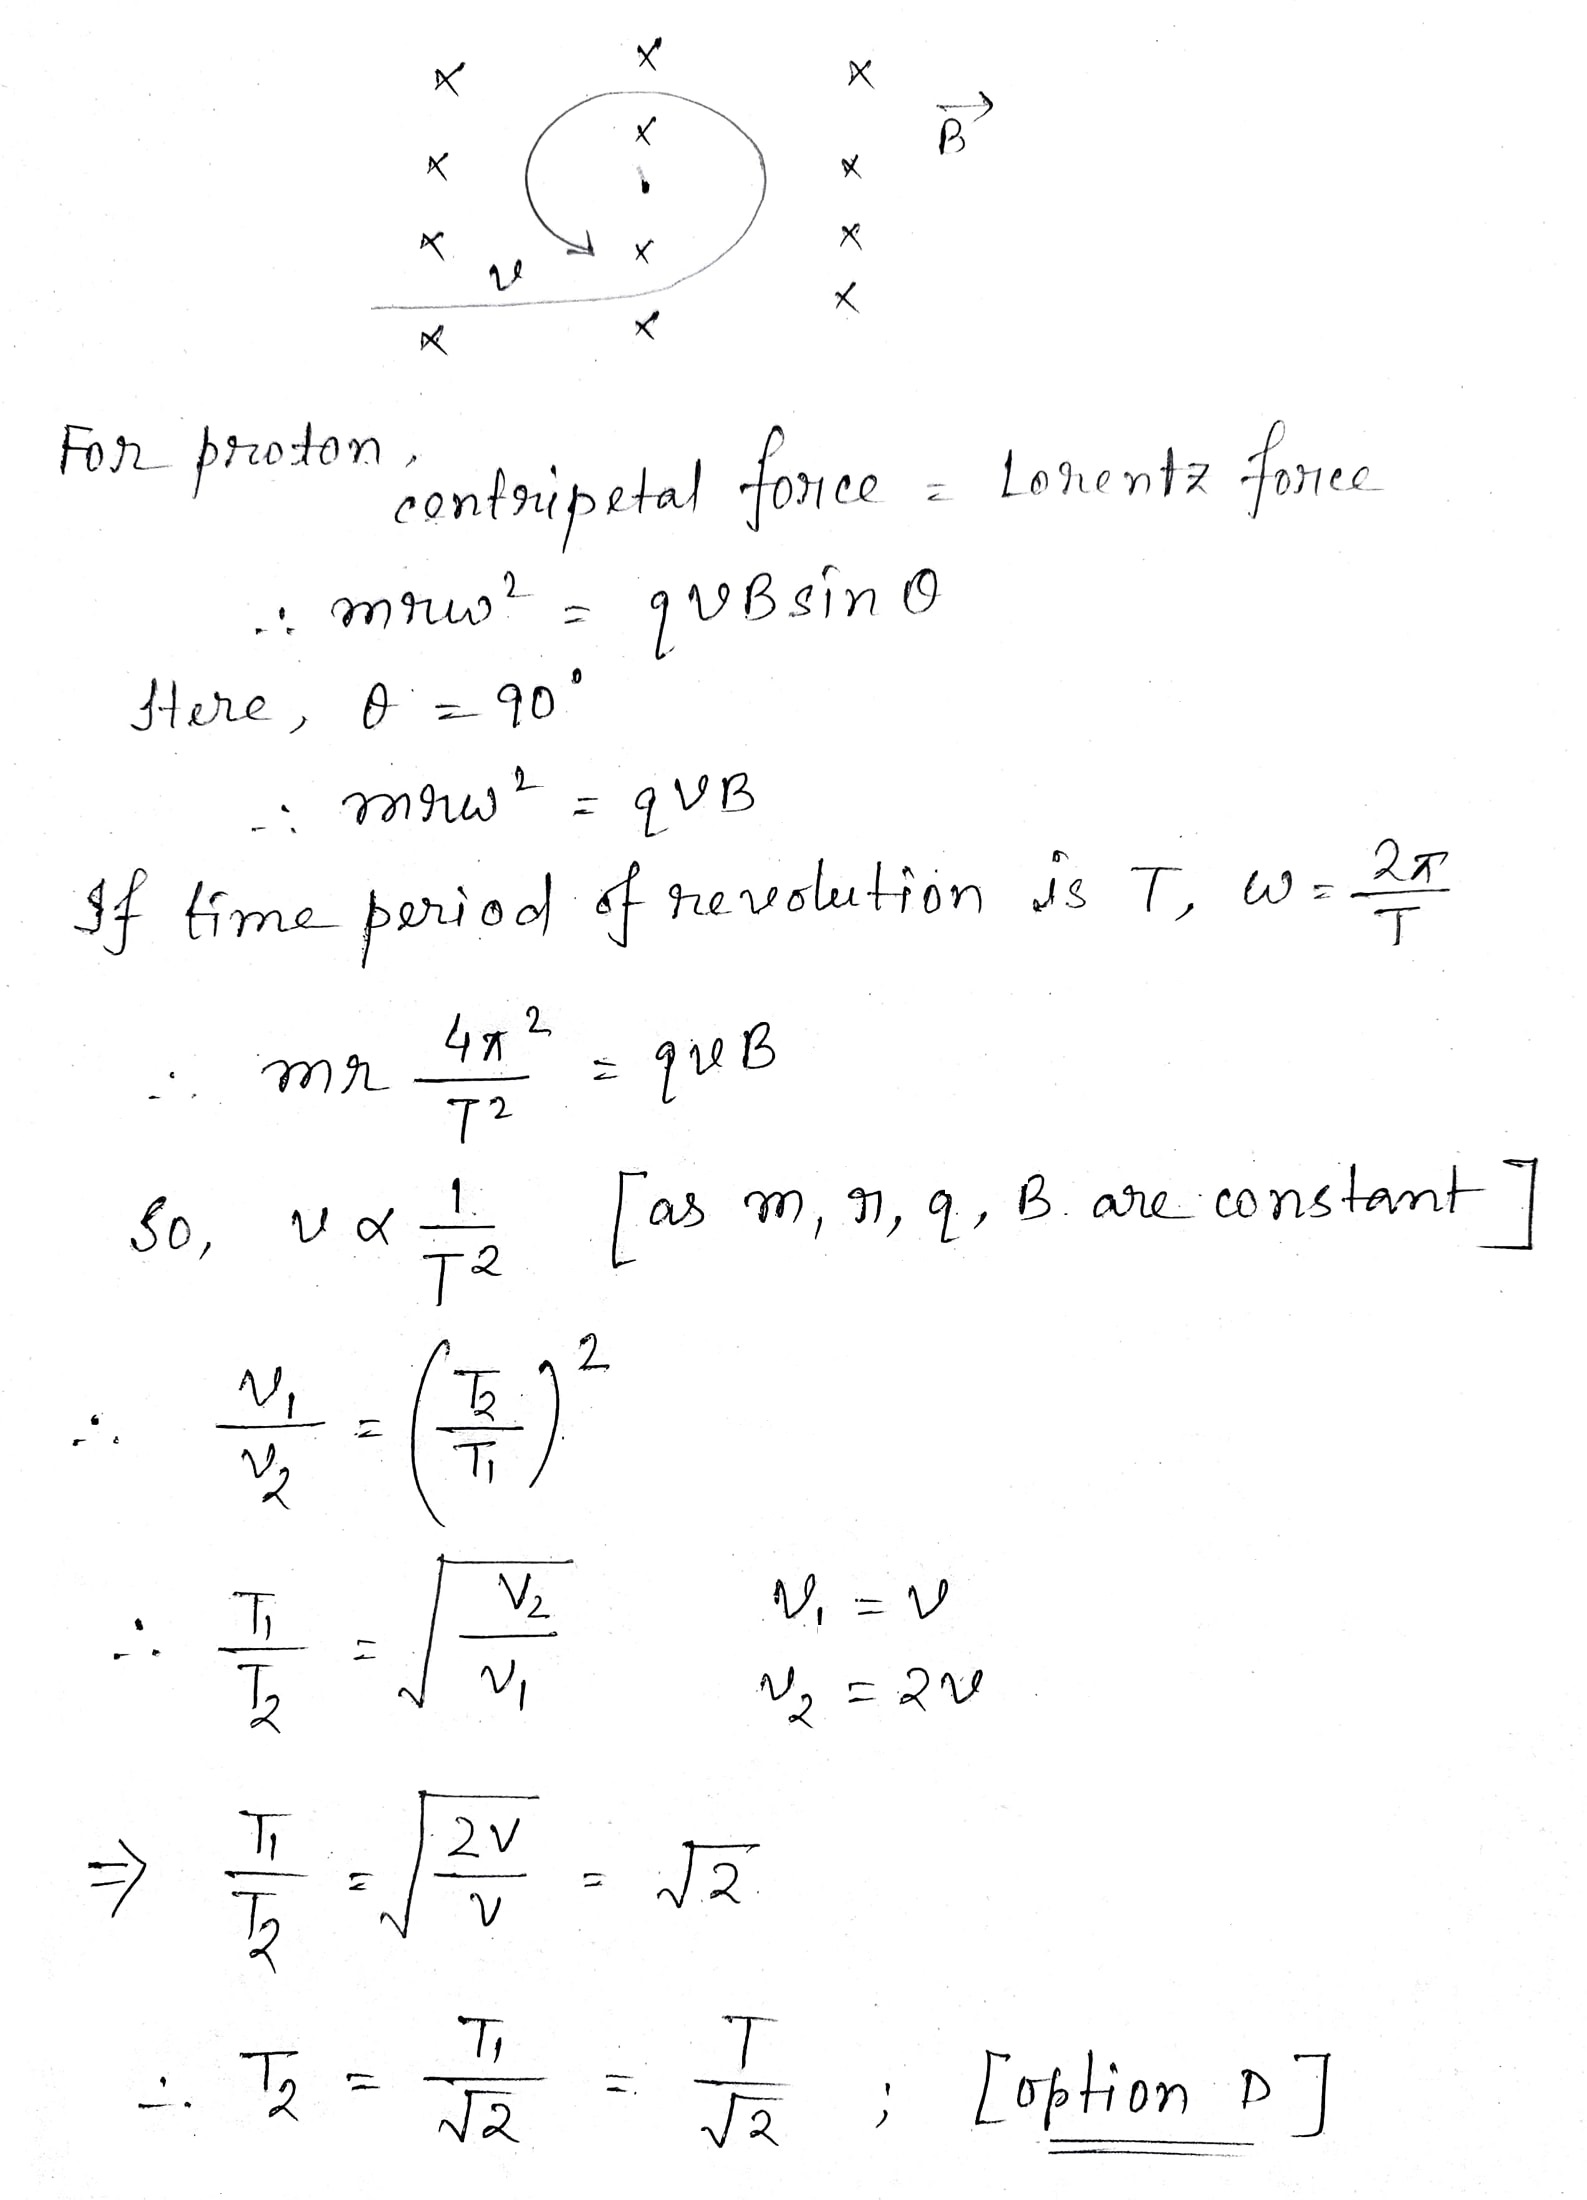 x x x
x x x B⃗
x x x
v x
x x
For proton,
centripetal force = Lorentz force
∴ mrω² = qvB sin θ
Here, θ = 90°
∴ mrω² = qvB
If time period of revolution is T, ω = 2π/T
∴ mr 4π²/T² = qvB
So, v ∝ 1/T² [as m, r, q, B are constant]
∴ v₁/v₂ = (T₂/T₁)²
∴ T₁/T₂ = √(v₂/v₁) v₁ = v
v₂ = 2v
⇒ T₁/T₂ = √(2v/v) = √2
∴ T₂ = T₁/√2 = T/√2 ; [option D]